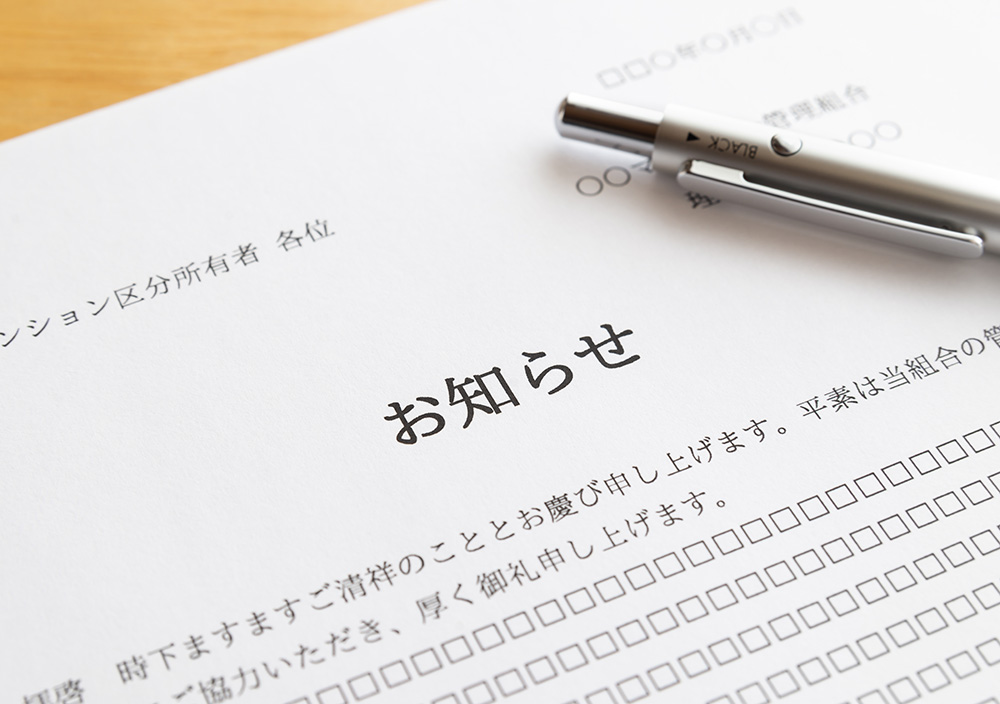 □□○年○月○日
管理組合
○○
理 ○○
ンション区分所有者 各位
お知らせ
拝啓 時下ますますご清祥のこととお慶び申し上げます。平素は当組合の管
ご協力いただき、厚く御礼申し上げます。
□□□□□□□□□□□□□□□□□□□□□□□□
BLACK